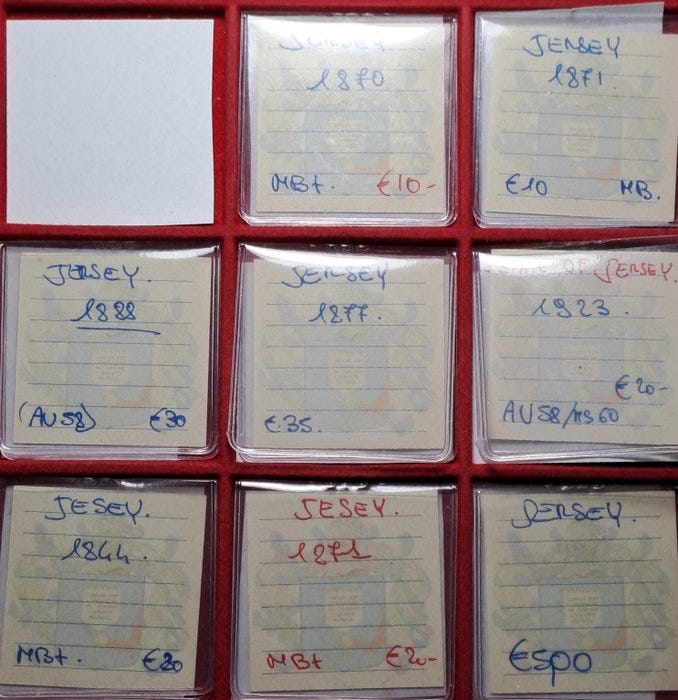 JERSEY
1870
MB+. €10-
JERSEY
1871.
€10 MB.
JERSEY.
1888
(AU58) €30
JERSEY
1877.
€35.
OF JERSEY.
1923.
€20-
AU58/MS60
JESEY.
1844.
MB+. €20
JESEY.
1871
MB+ €20-
JERSEY.
€500